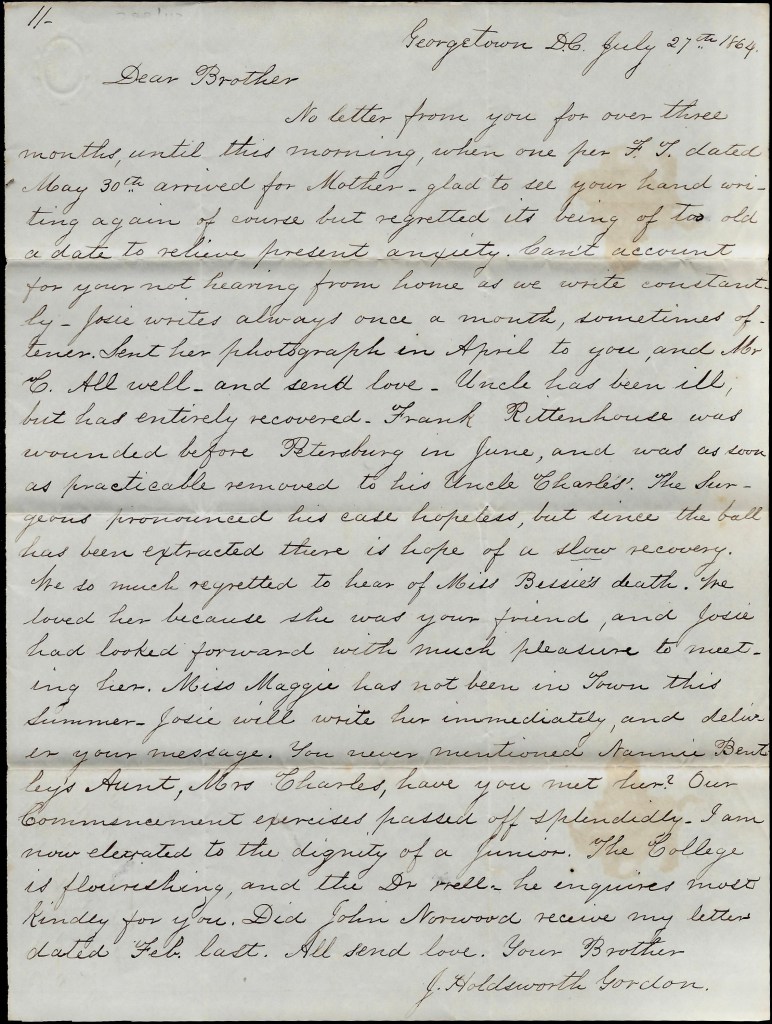 11-
Georgetown D.C. July 27th 1864.
Dear Brother
No letter from you for over three
months, until this morning, when one per F. T. dated
May 30th arrived for Mother - glad to see your hand wri-
ting again of course but regretted its being of too old
a date to relieve present anxiety. Can't account
for your not hearing from home as we write constant-
ly - Josie writes always once a month, sometimes of-
tener. Sent her photograph in April to you, and Mr
C. All well - and send love - Uncle has been ill,
but has entirely recovered - Frank Rittenhouse was
wounded before Petersburg in June, and was as soon
as practicable removed to his Uncle Charles'. The Sur-
geons pronounced his case hopeless, but since the ball
has been extracted there is hope of a slow recovery.
We so much regretted to hear of Miss Bessie's death. We
loved her because she was your friend, and Josie
had looked forward with much pleasure to meet-
ing her. Miss Maggie has not been in Town this
Summer - Josie will write her immediately, and deliv-
er your message. You never mentioned Nannie Bent
leys Aunt, Mrs Charles, have you met her? Our
Commencement exercises passed off splendidly - I am
now elevated to the dignity of a Junior. The College
is flourishing, and the Dr well - he enquires most
kindly for you. Did John Norwood receive my letter
dated Feb. last. All send love. Your Brother
J. Holdsworth Gordon.